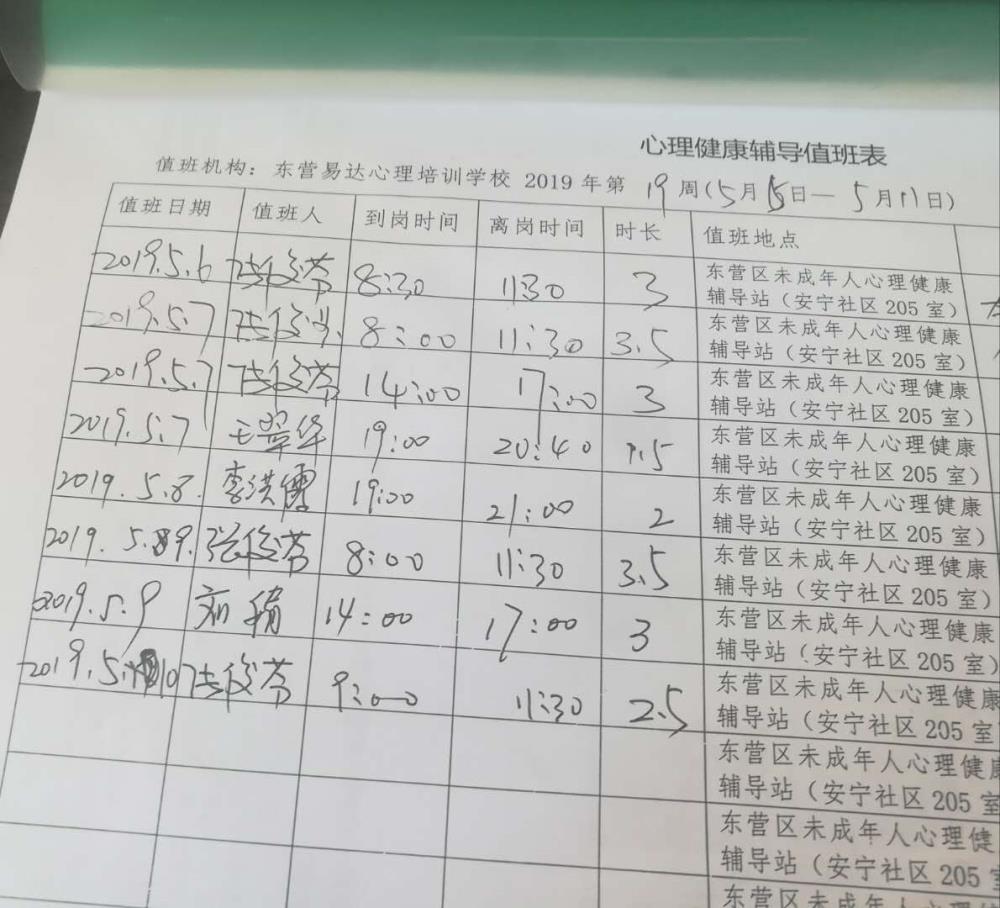 心理健康辅导值班表
值班机构：东营易达心理培训学校 2019 年第 19 周(5月 5日— 5月11日)
值班日期 值班人 到岗时间 离岗时间 时长 值班地点
2019.5.6 8:30 11:30 3 东营区未成年人心理健康
辅导站（安宁社区 205 室）
2019.5.7 8:00 11:30 3.5 东营区未成年人心理健康
辅导站（安宁社区 205 室）
2019.5.7 14:00 17:00 3 东营区未成年人心理健康
辅导站（安宁社区 205 室）
2019.5.7 王翠华 19:00 20:40 1.5 东营区未成年人心理健康
辅导站（安宁社区 205 室）
2019.5.8. 李洪儒 19:00 21:00 2 东营区未成年人心理健康
辅导站（安宁社区 205 室）
2019.5.9. 8:00 11:30 3.5 东营区未成年人心理健康
辅导站（安宁社区 205 室）
2019.5.9 14:00 17:00 3 东营区未成年人心理健康
辅导站（安宁社区 205 室）
2019.5.10 9:00 11:30 2.5 东营区未成年人心理健康
辅导站（安宁社区 205 室
东营区未成年人心理健康
辅导站（安宁社区 205 室
东营区未成年人心理健
辅导站（安宁社区 205
东营区未成年人心理